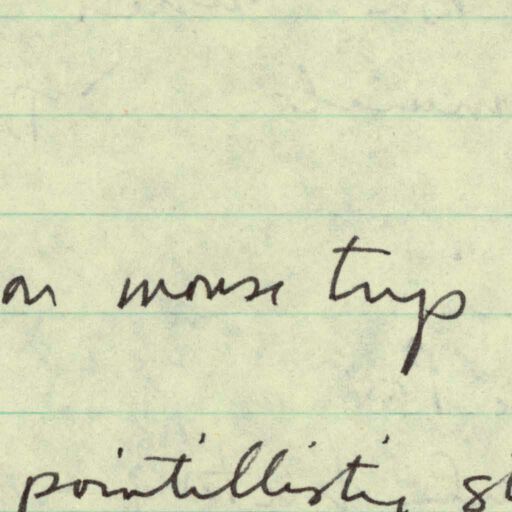 on mouse trip
pointillistic